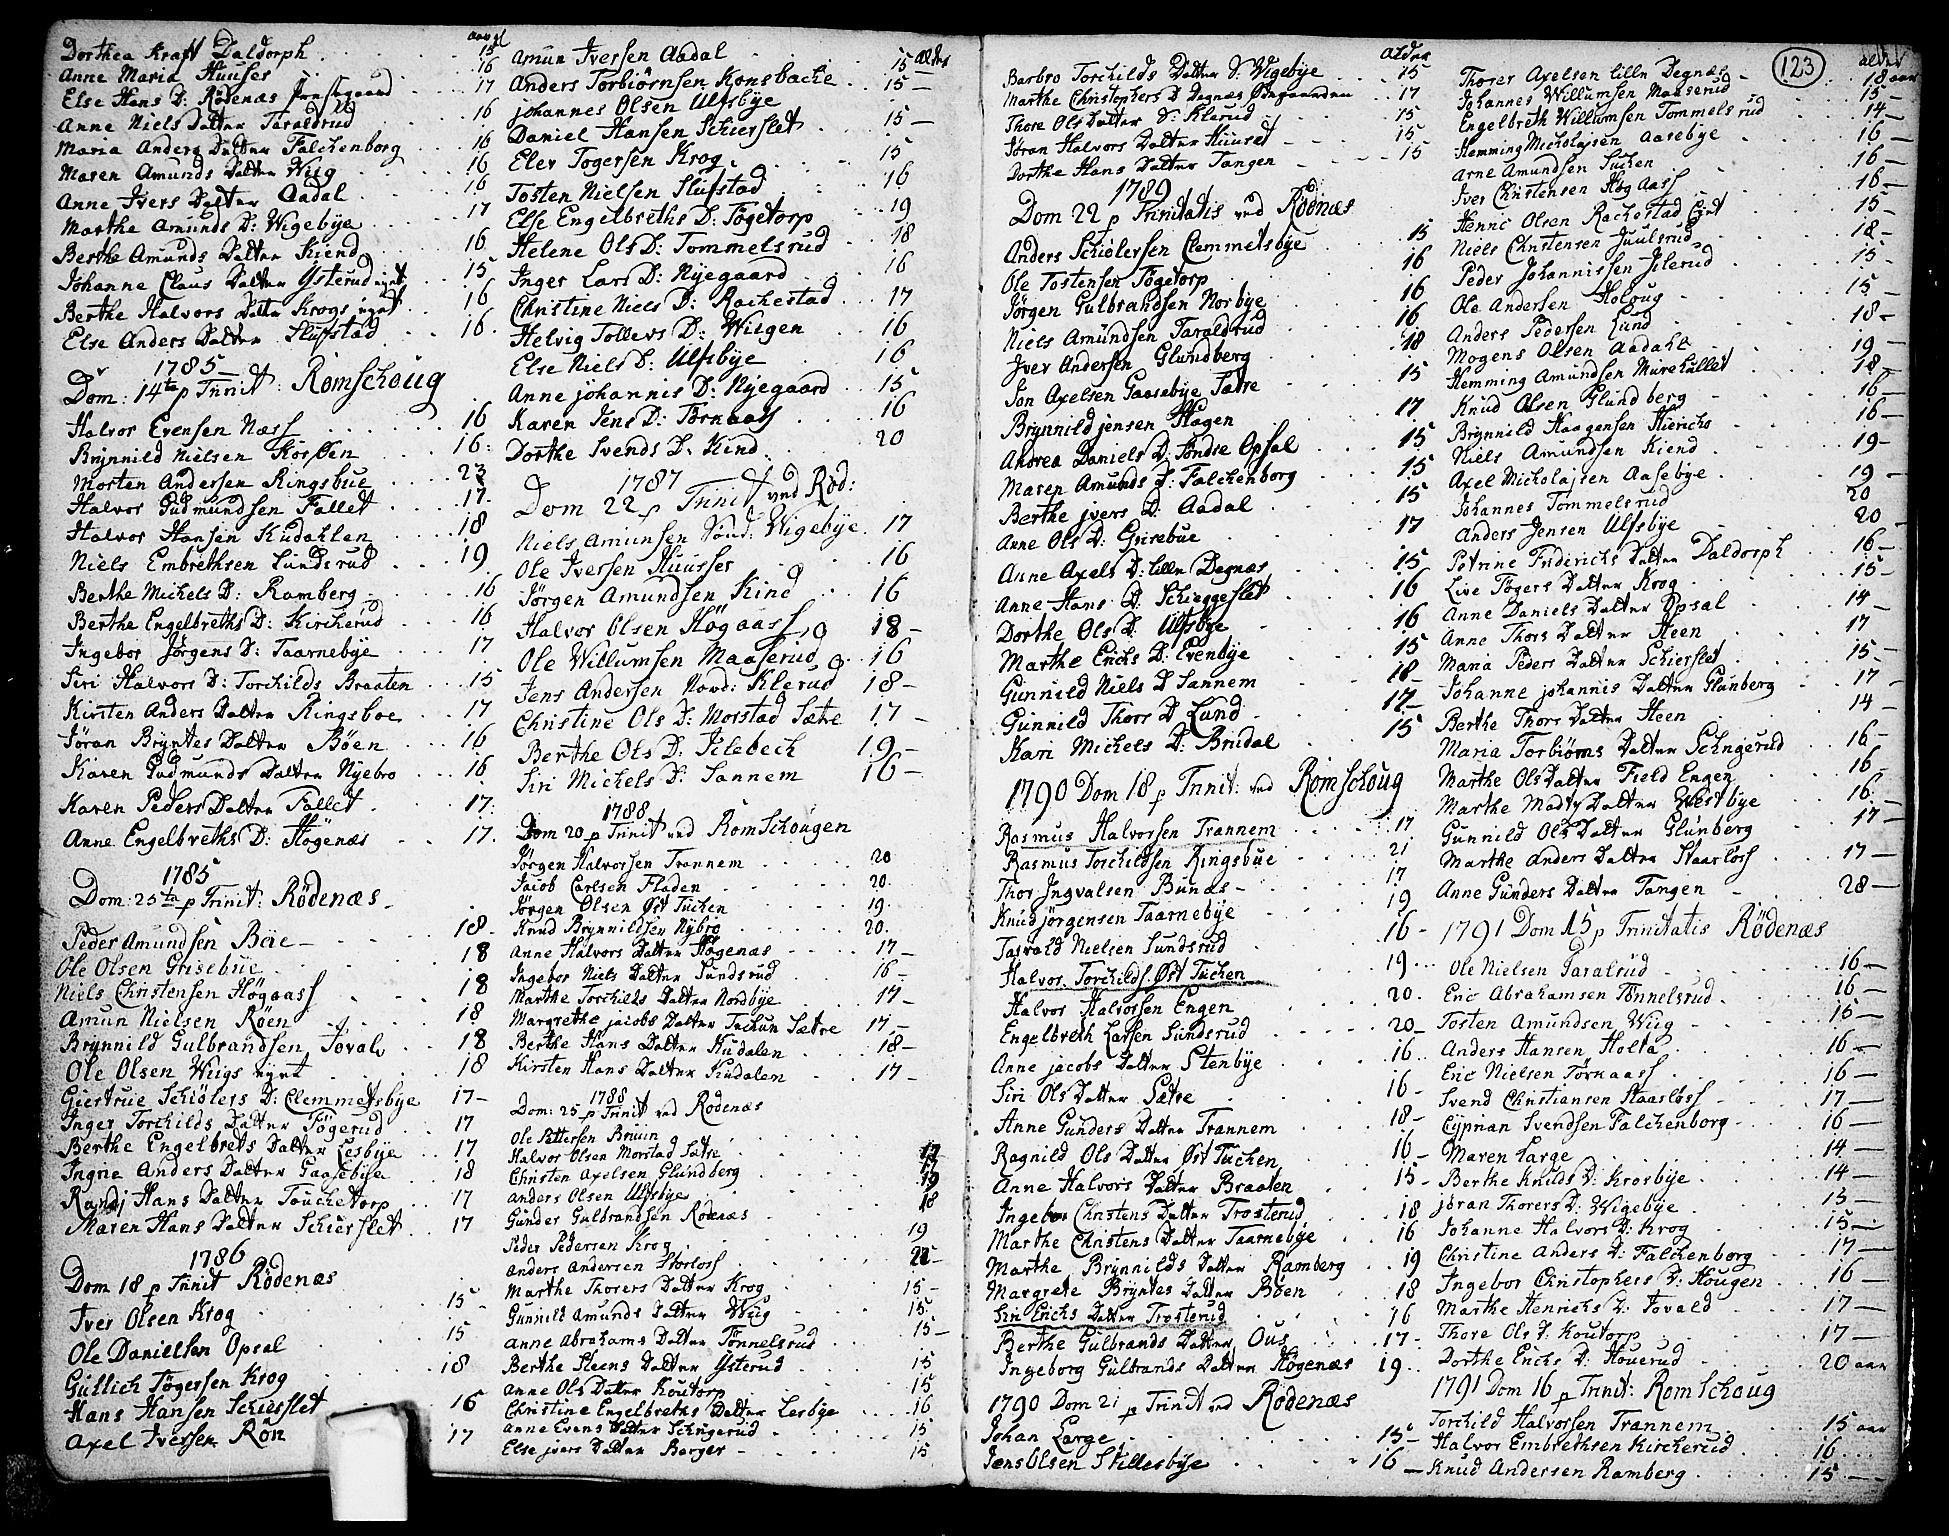 Dorthea Kraft Daldorph 15
Anne Maria Huuses 16
Else Hans D: Rödenæs 17
Anne Niels Datter Taraldrud 16
Maria Anders Datter Falchenborg 16
Maren Amunds Datter Wiig 16
Anne Ivers Datter Aadal 16
Marthe Amunds D: Wigebÿe 17
Berthe Amunds Datter Kiend 16
Johanne Claus Datter Ÿsterud 15
Berthe Halvors Datter Krogs 16
Else Anders Datter Slufstad 16
1785
Dom: 14 p Trinit: Romschoug
Halvor Evensen Næss 16
Brÿnnild Nielsen Kossen 16
Morten Andersen Ringsbue 23
Halvor Gudmundsen Fallet 17
Halvor Hansen Kudahlen 18
Niels Embrethsen Lundsrud 19
Berthe Michels D: Ramberg 16
Berthe Engelbreths D: Kircherud 16
Ingebor Jörgens D: Taarnebÿe 17
Siri Halvors D: Torchilds Braaten 15
Kirsten Anders Datter Ringsboe 17
Jöran Brÿntes Datter Böen 16
Karen Gudmunds Datter Nÿebro 16
Karen Peders Datter Fallet 17
Anne Engelbreths D: Högenæs 17
1785
Dom: 25 p Trinit: Rödenæs
Peder Amundsen Böe 18
Ole Olsen Grisebue 18
Niels Christensen Högaass 18
Amun Nielsen Röen 18
Brÿnnild Gulbrandsen Joval 18
Ole Olsen Wiigs 18
Giertrue Schiölers D: Clemmetsbÿe 17
Inger Torchilds Datter Fögerud 17
Berthe Engelbrets Datter Lesbÿe 17
Ingrie Anders Datter Gaasebÿe 18
Randj Hans Datter Touchetorp 17
Maren Hans Datter Schierslet 17
1786
Dom 18 p Trinit Rödenæs
Iver Olsen Krog 15
Ole Danielsen Opsal 15
Gullich Tögersen Krog 18
Hans Hansen Schierslet 16
Axel Iversen Rön 17
Amun Iversen Aadal 15
Anders Torbiörnsen Konsbache 15
Johannes Olsen Ulfsbÿe
Daniel Hansen Schierslet 15
Elev Togersen Krog 15
Tosten Nielsen Slufstad 16
Else Engelbreths D: Fögetorp 19
Helene Ols D: Tommelsrud 18
Inger Lars D: Nÿegaard 16
Christine Niels D: Rachestad 17
Helvig Tollevs D: Wiigen 16
Else Niels D: Ulfsbÿe 16
Anne Johannis D: Nÿegaard 15
Karen Jens D: Törnaass 16
Dorthe Svends D: Kiend 20
1787
Dom 22 p Trinit ved Röd:
Niels Amunsen Wigebÿe 17
Ole Iversen Huusser 16
Jörgen Amundsen Kind 16
Halvor Olsen Högaass 18
Ole Willumsen Maaserud 16
Jens Andersen Nord: Klerud 18
Christine Ols D: Morstad Sætre 17
Berthe Ols D: Ilebech 19
Siri Michels D: Sannem 16
1788
Dom 20 p Trinit ved Romschougen
Jörgen Halvorsen Trannem 20
Jacob Carlsen Fladen 20
Jörgen Olsen Öst Tuchen 19
Knud Brÿnnildsen Nÿbro 20
Anne Halvors Datter Högenæs 17
Ingebor Niels Datter Lundsrud 16
Marthe Torchilds Datter Nordbÿe 17
Margrethe Jacobs Datter Tuchun Sætre 17
Berthe Hans Datter Kudalen 18
Kirsten Hans Datter Kudalen 17
1788
Dom: 25 p Trinit ved Rodenæs
Ole Pettersen Bruun
Halvor Olsen Morstad Sætre 17
Christen Axelsen Glundberg 17
Anders Olsen Ulfsbÿe 19
Gunder Gulbrandsen Rodenæs 18
Peder Pedersen Krog 19
Anders Andersen Storloss 22
Marthe Thorers Datter Krog 15
Gunnild Amunds Datter Wiig 15
Anne Abrahams Datter Tönnelsrud 15
Berthe Steens Datter Ÿsterud 15
Anne Ols Datter Koutorp 15
Christine Engelbreths Datter Lesbÿe 16
Anne Evens Datter Schngerud 15
Else Jvers Datter Berger 15
alder
Barbro Torchilds Datter D: Wigebÿe 15
Marthe Christophers D Degnæs 17
Thore Ols Datter D: Klerud 15
Jöran Halvors Datter Huuset 15
Dorthe Hans Datter Tangen 15
1789
Dom 22 p Trinitatis ved Rödnæs
Anders Schiölersen Clemmetsbÿe 15
Ole Tostensen Fögetorp 16
Jörgen Gulbrandsen Norbÿe 16
Niels Amundsen Taraldrud 16
Jver Andersen Glundberg 18
Jon Axelsen Gaasebÿe Sætre 15
Brÿnnild Jensen Hagen 17
Andrea Daniels D: Söndre Opsal 15
Maren Amunds D: Falchenborg 15
Berthe Jvers D. Aadal 15
Anne Ols D: Grisebue 17
Anne Axels D: lille Degnæs 15
Anne Hans D. Schieggeslet 16
Dorthe Ols D. Ulfsbÿe 16
Marthe Erichs D: Evenbÿe 15
Gunnild Niels D Sannem 18
Gunnild Thors D Lund 17
Kari Michels D: Bridal 15
1790 Dom 18 p Trinit: ved Romschoug
Rasmus Halvorsen Trannem 17
Rasmus Torchildsen Ringsbue 21
Thor Ingvalsen Bunæs 17
Knud Jörgensen Taarnebÿe 19
Tarvald Nielsen Lundsrud 16
Halvor Torchilds: Öst Tuchen 19
Halvor Halvorsen Engen 20
Engelbreth Larsen Lundsrud 20
Anne Jacobs Datter Stenbÿe 16
Siri Ols Datter Sætre 16
Anne Gunders Datter Trannem 18
Ragnild Ols Datter Öst Tuchen 16
Anne Halvors Datter Braaten 15
Ingebor Christens Datter Trosterud 18
Marthe Christens Datter Taarnebÿe 16
Marthe Brÿnnilds Datter Ramberg 19
Margrete Brÿntes Datter Böen 18
Siri Erichs Datter Trosterud 16
Berthe Gulbrands Datter Ous 17
Ingeborg Gulbrands Datter Högenæs 19
1790 Dom 21 p Trinit ved Rödenæs
Johan Large 15
Jens Olsen Stillesbÿe 16
123
Thorer Axelsen lille Degnæs 18 aar
Johannes Willumsen Maaserud 15
Engelbreth Willumsen Tommelsrud 14
Hemming Micholajsen Aasebÿe 16
Arne Amundsen Tuchen 16
Iver Christensen Hög Aass 16
Henric Olsen Rachestad 15
Niels Christensen Juulsrud 18
Peder Johannissen Ilerud 15
Ole Andersen Holoug 15
Anders Pedersen Lund 18
Mogens Olsen Aadahl 19
Hemming Amundsen Murehullet 18
Knud Olsen Glundberg 16
Brÿnnild Haagensen Hierichs 16
Niels Amundsen Kiend 19
Axel Micholajsen Aasebÿe 19
Johannes Tommelsrud 20
Anders Jensen Ulfsbÿe 20
Petrine Friderichs Datter Daldorph 16
Live Tögers Datter Krog 15
Anne Daniels Datter Opsal 14
Anne Thors Datter Heen 17
Maria Peders Datter Schierslet 15
Johanne Johannis Datter Glunberg 17
Berthe Thors Datter Heen 14
Maria Torbiörns Datter Schngerud 16
Marthe Ols Datter Field Engen 16
Marthe Madtz Datter Westbÿe 16
Gunnild Ols Datter Glunberg 17
Marthe Anders Datter Staarloss 17
Anne Gunders Datter Tangen 28
1791 Dom 15 p Trinitatis Rödenæs
Ole Nielsen Taralrud 16
Eric Abrahamsen Tönnelsrud 16
Tosten Amundsen Wiig 15
Anders Hansen Holta 16
Eric Nielsen Törnaass 16
Svend Christiansen Staarloss 17
Cÿprian Svendsen Falchenborg 16
Maren Large 14
Berthe Knuds D: Krosbÿe 14
Jöran Thorers D: Wigebÿe 15
Johanne Halvors D: Krog 15
Christine Anders D: Falchenborg 17
Ingebor Christophers D: Hougen 16
Marthe Henrichs D: Jovald 17
Thore Ols D: Koutorp 17
Dorthe Erichs D: Houerud 20 aar
1791 Dom 16 p Trinit: Romschoug
Torchild Halvorsen Trannem 15 aar
Halvor Embrethsen Kircherud 16
Knud Andersen Ramberg 15